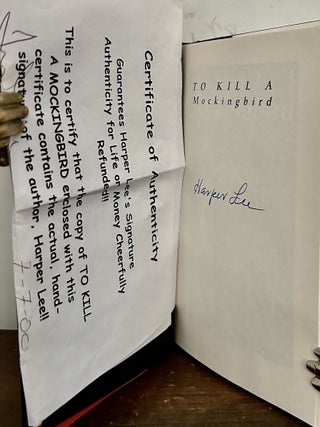 Certificate of Authenticity
Guarantees Harper Lee's Signature
Authenticity for Life or Money Cheerfully
Refunded!!
This is to certify that the copy of TO KILL
A MOCKINGBIRD enclosed with this
certificate contains the actual, hand-
of the author, Harper Lee!!
7-7-00
TO KILL A
Mockingbird
Harper Lee